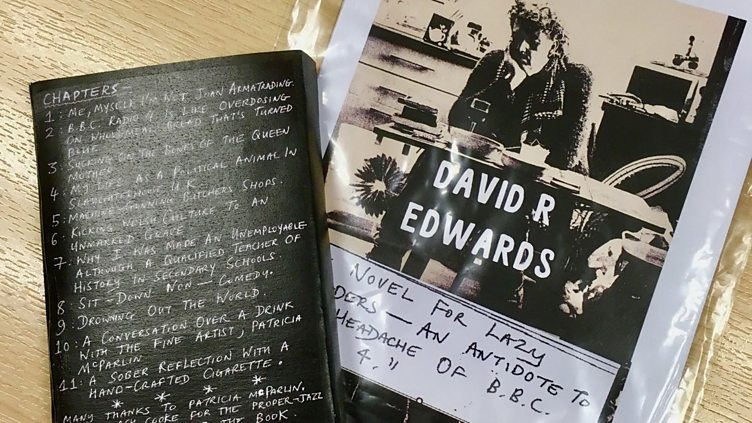 CHAPTERS —
1: ME, MYSELF I'M NOT JOAN ARMATRADING.
2: B.B.C RADIO 4 IS LIKE OVERDOSING
ON WHOLEMEAL BREAD THAT'S TURNED
BLUE.
3: SUCKING ON THE BONES OF THE QUEEN
MOTHER.
4: MY LIFE AS A POLITICAL ANIMAL IN
SLAUGHTERHOUSE U.K.
5: MACHINE-GUNNING BUTCHERS SHOPS.
6: KICKING NOISE CULTURE TO AN
UNMARKED GRAVE
7: WHY I WAS MADE AN UNEMPLOYABLE
ALTHOUGH A QUALIFIED TEACHER OF
HISTORY IN SECONDARY SCHOOLS.
8: SIT-DOWN NON — COMEDY.
9: DROWNING OUT THE WORLD.
10: A CONVERSATION OVER A DRINK
WITH THE FINE ARTIST, PATRICIA
McPARLIN
11: A SOBER REFLECTION WITH A
HAND-CRAFTED CIGARETTE.
* * *
MANY THANKS TO PATRICIA McPARLIN,
COOKE FOR THE PROPER-JAZZ
THE BOOK.
DAVID R
EDWARDS
NOVEL FOR LAZY
— AN ANTIDOTE TO
HEADACHE OF B.B.C.
4."